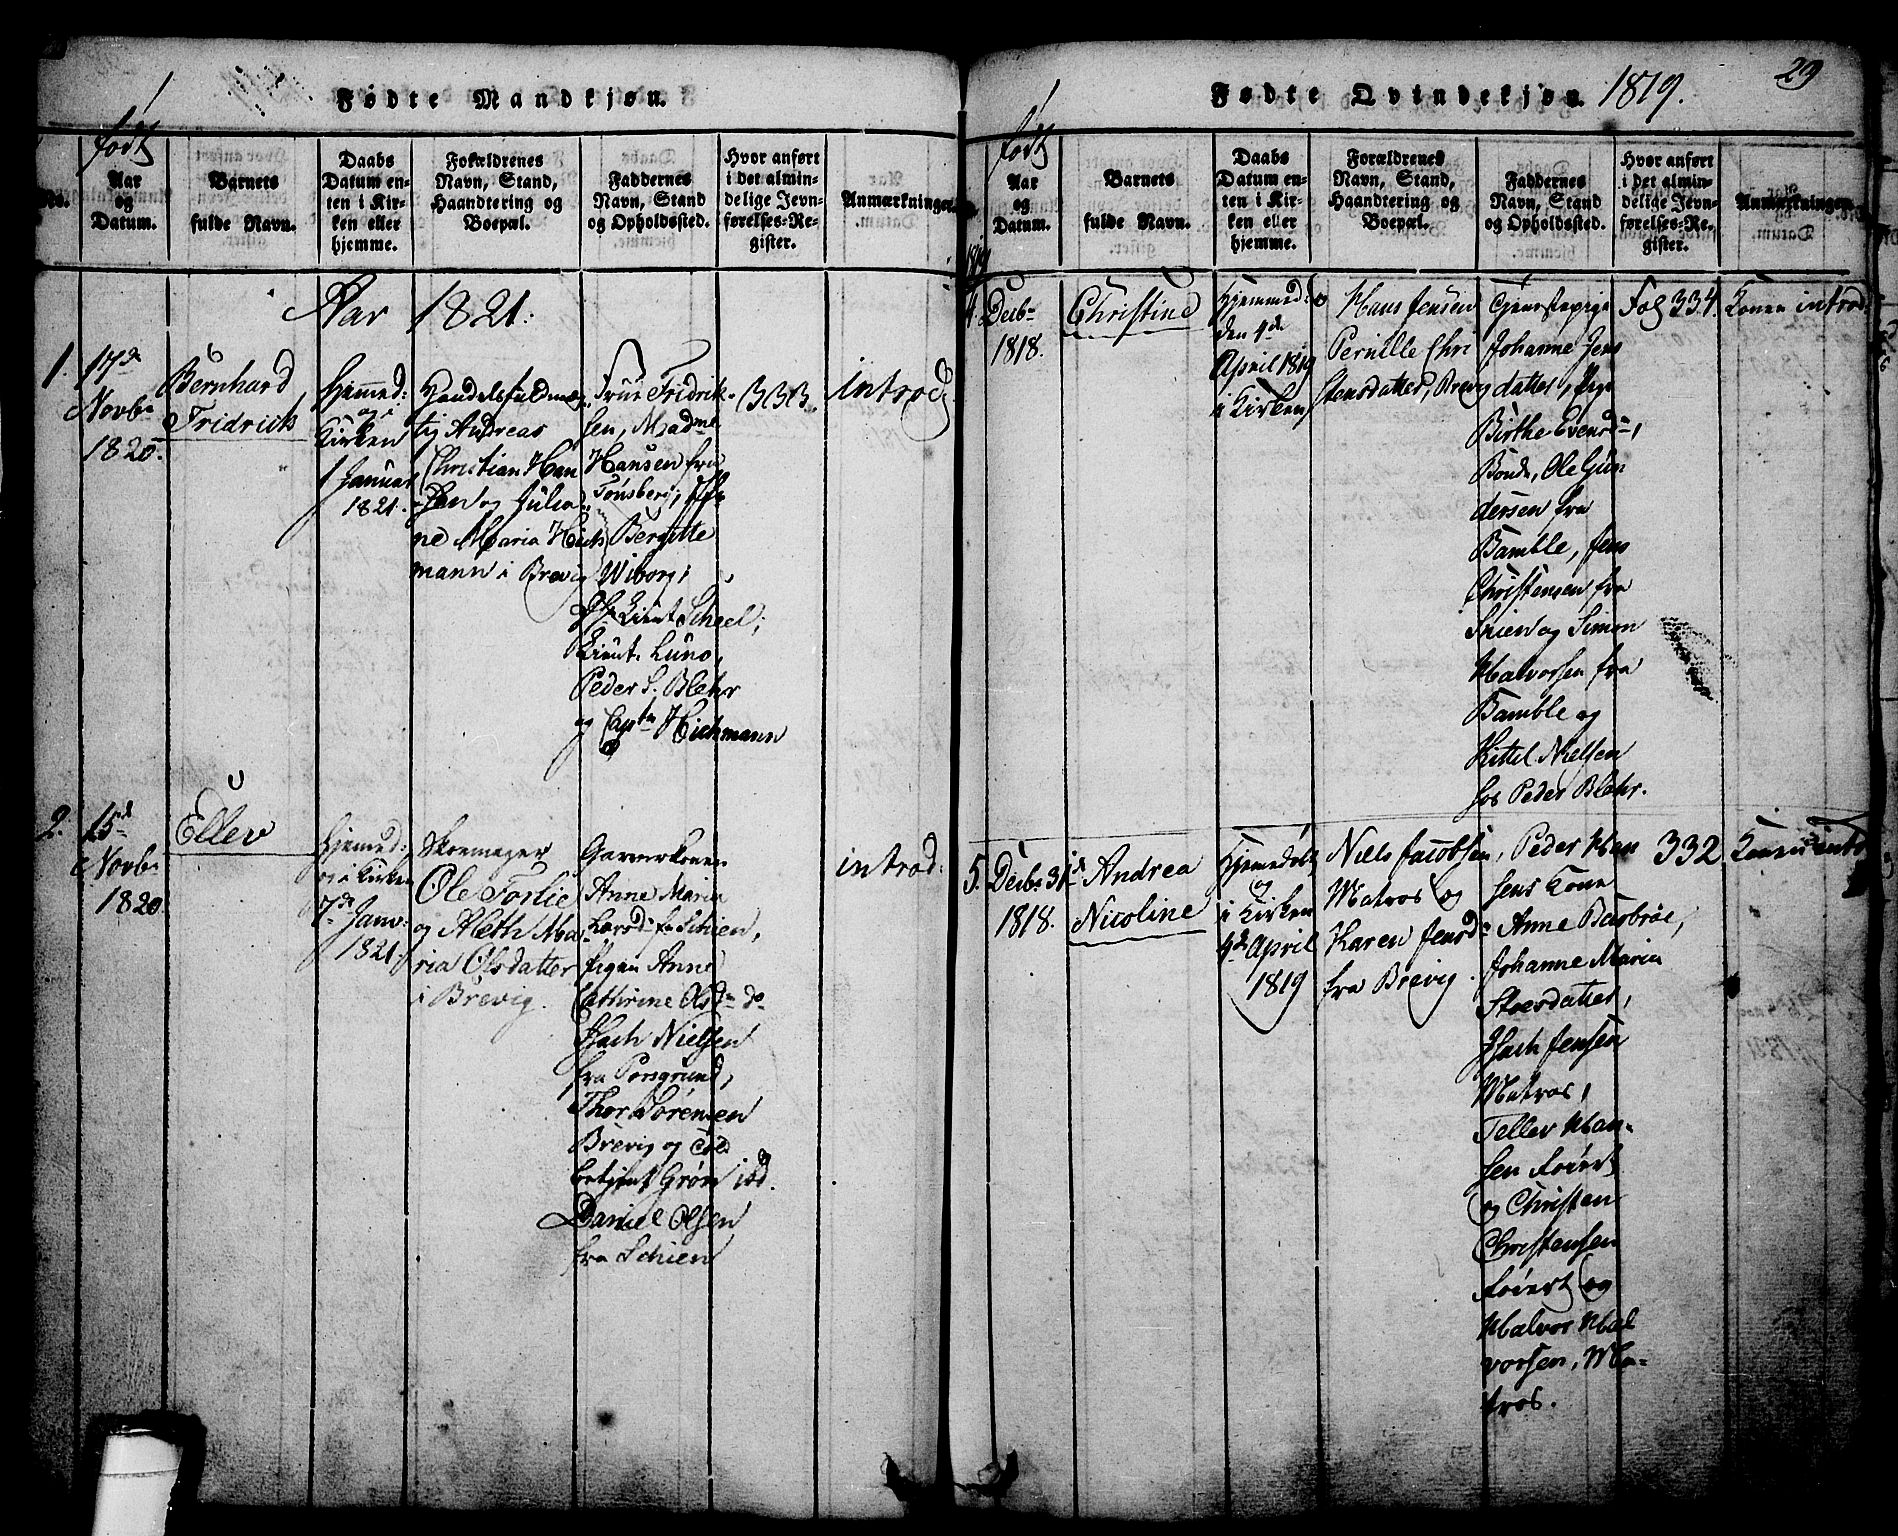 Fødte Mandkjøn.
født
No.
Aar
og
Datum.
Barnets
fulde Navn.
Daabs
Datum en-
ten i Kir-
ken eller
hjemme.
Foræ̈ldrenes
Navn, Stand,
Haandtering og
Boepæl.
Faddernes
Navn, Stand
og Opholdssted.
Hvor anført
i det almin-
delige Jevn-
førelses-Re-
gister.
Anmærkninger
Aar 1821.
1.
17de
Novbr
1820.
Bernhard
Fridrich
Hjemmed:
og i
Kirken
1 Januar
1821.
Handelsfuldmæg-
tig Andreas
Christian Han
sen og Julia
ne Maria Heich
mann i Brevig
Frue Fridrik-
sen, Madme
Hansen fra
Tønsberg, Jfr
Bergitte
Wiborg,
Lieut. Scheel,
Lieut. Luno,
Peder S. Blehr
og Captn Hichmann
333.
introd.
2.
15d
Novbr
1820
Ellev
Hjemmed:
og i Kirken
7de Janv:
1821.
Skoemager
Ole Torlie
og Aleth Ma
ria Olsdatter
i Brevig.
Garverkonen
Anne Maria
Larsd: fra Schien,
Pigen Anne
Cathrine Olsdr do
Isach Nielsen
fra Porsgrund,
Thor Sørensen
Brevig og
betjent Grøn ibd.
Daniel Olsen
fra Schien
introd:
Fødte Qvindekjøn. 1819.
29
født
Aar
og
Datum.
Barnets
fulde Navn.
Daabs
Datum en-
ten i Kir-
ken eller
hjemme.
Forældrenes
Navn, Stand,
Haandtering og
Boepæl.
Faddernes
Navn, Stand
og Opholdssted.
Hvor anført
i det almin-
delige Jevn-
førelses-Re-
gister.
Anmærkninger
1819
4.
Decbr
1818.
Christine
Hjemmed:
den 4de
April 1819
i Kirken
Hans Jensen
Pernille Chri
stensdatter, Brevig
Tjenestepige
Johanne Jens
datter, Pige
Birthe Evensdr,
Bonde, Ole Gun
dersen fra
Bamble, Jens
Christensen fra
Skien og Simon
Halvorsen fra
Bamble og
Kittel Nielsen
hos Peder Blehr.
Fol 334.
Konen introd.
5.
Decbr 31d
1818.
Andrea
Nicoline
Hjemmedøbt
og
i Kirken
4de April
1819
Niels Jacobsen,
Matros og
Karen Jensd:
fra Brevig.
Peder Han
sens Kone
Anne Basbröe,
Johanne Maria
Isach Jensen
Matros,
Teller Han-
sen
og Christen
Christensen
og
Halvor Hal
vorsen, Ma-
tros.
332
Konen introd